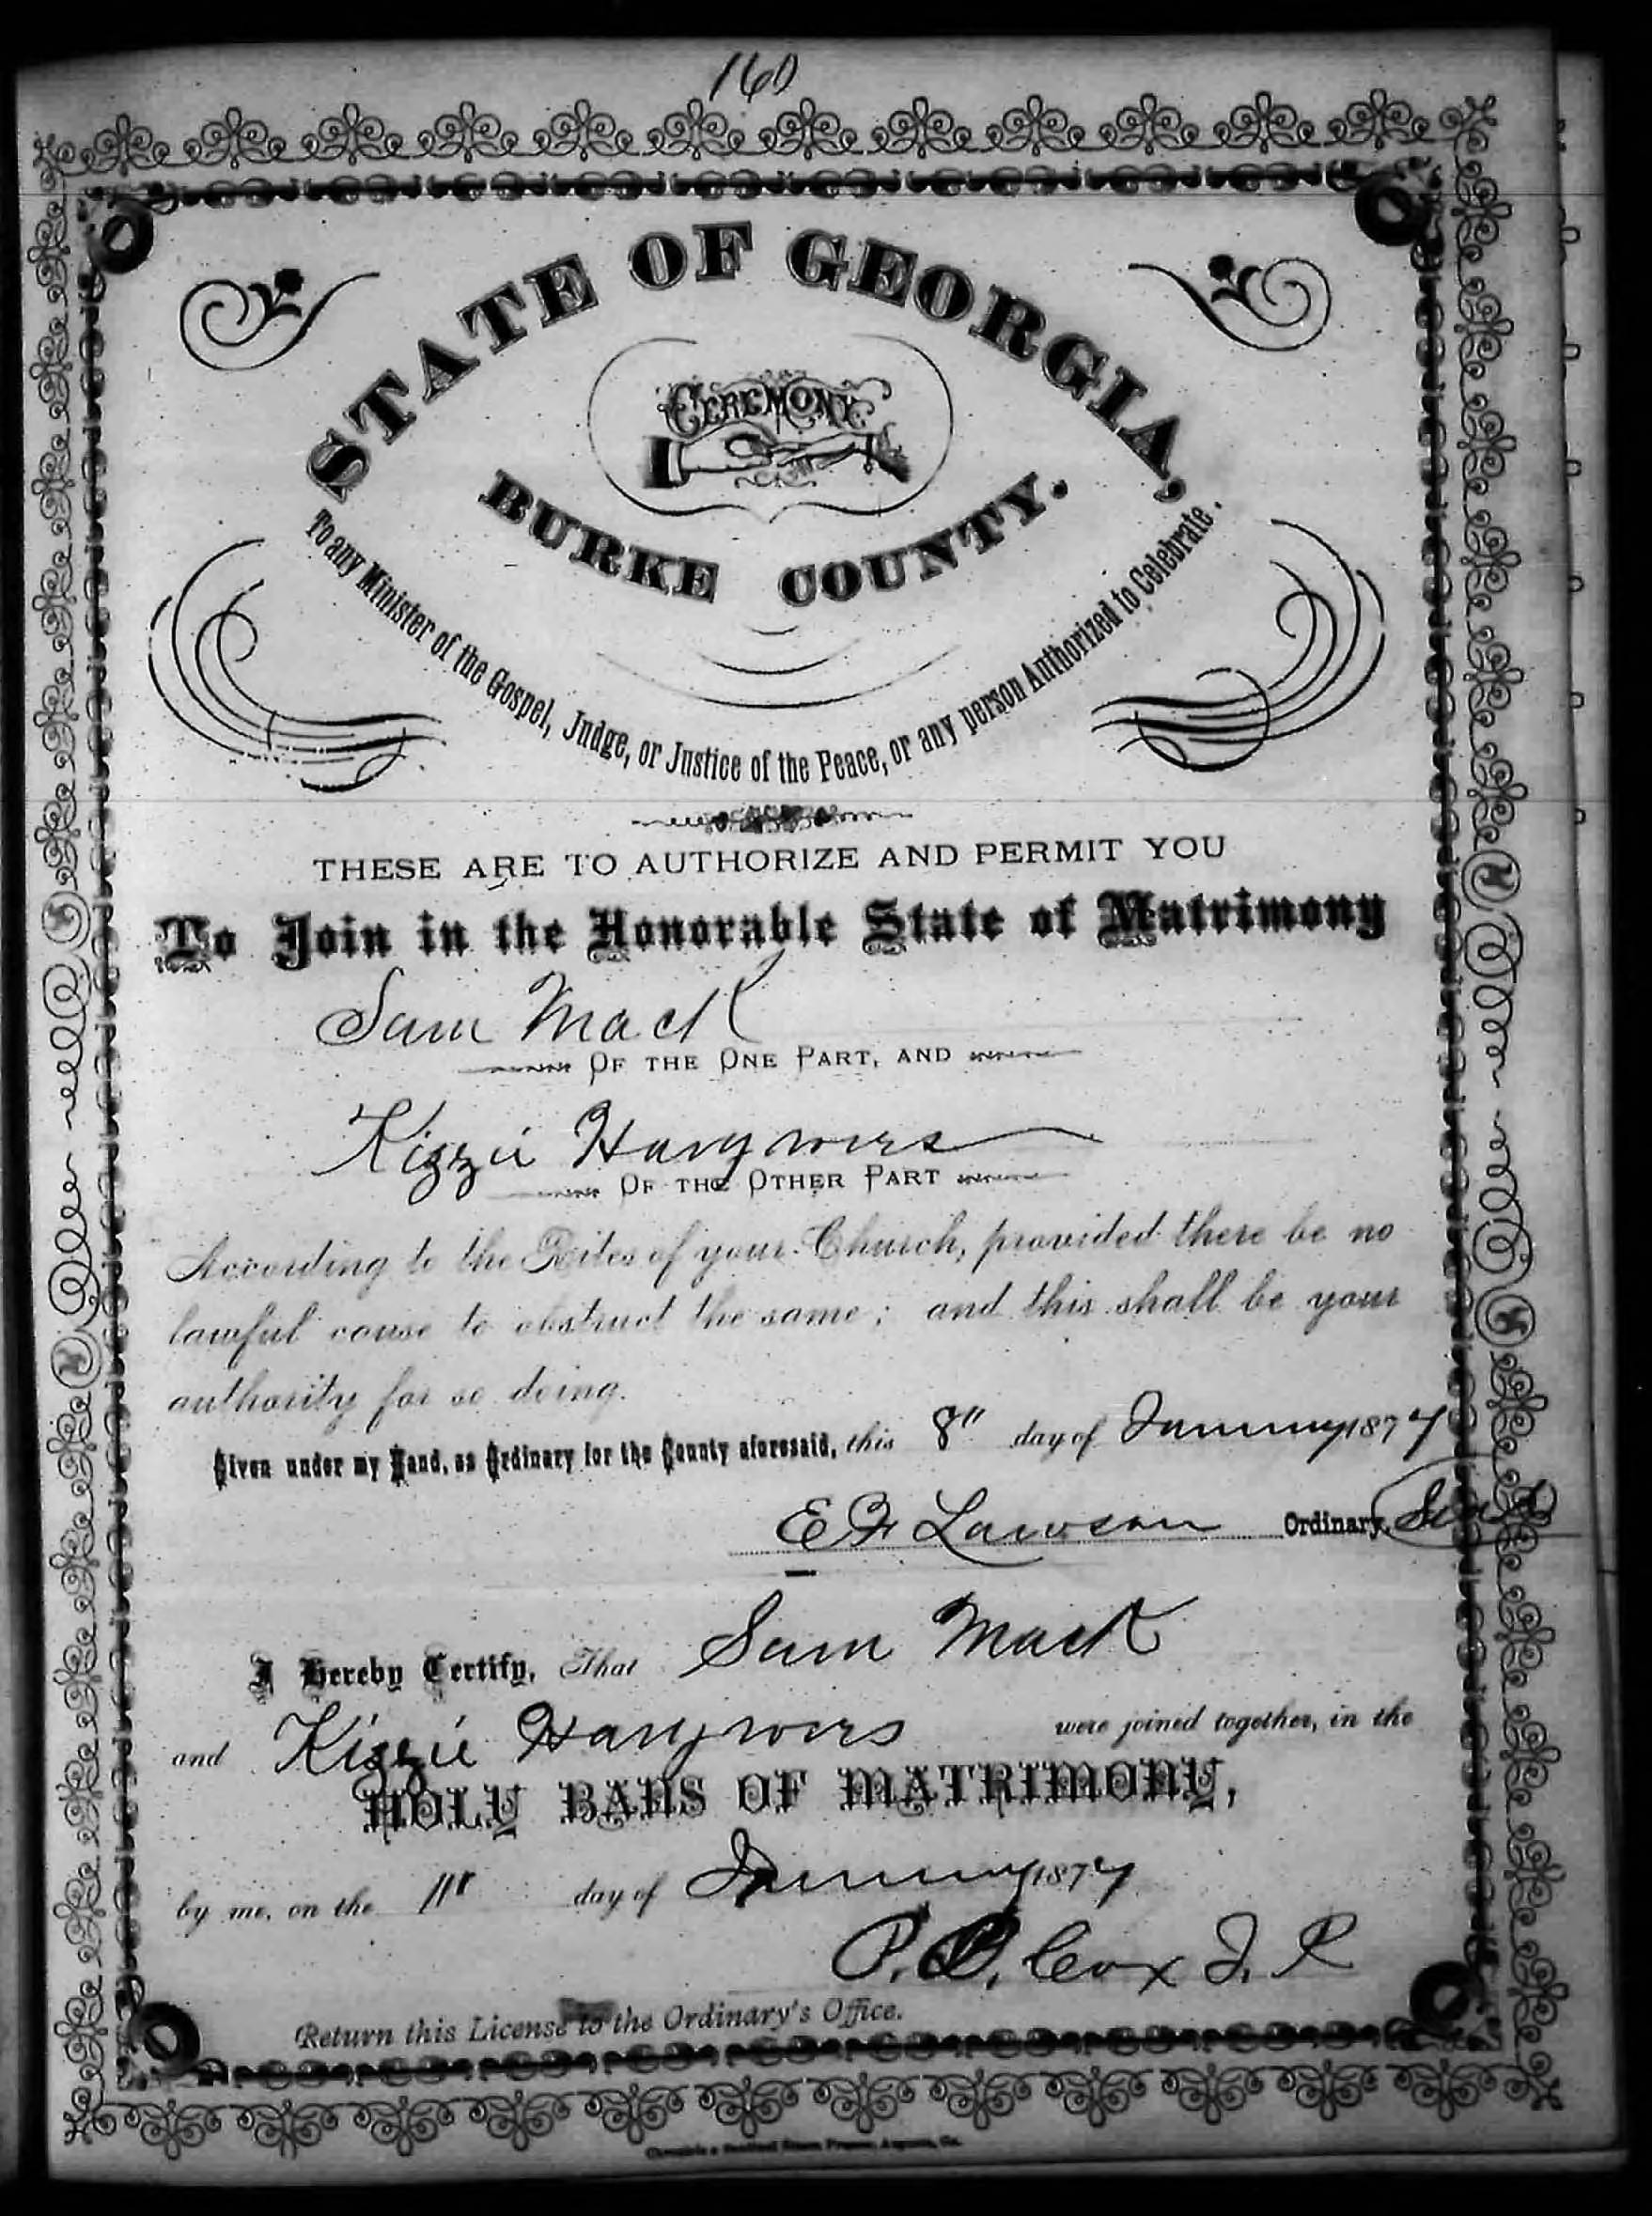 160
STATE OF GEORGIA,
CEREMONY
BURKE COUNTY.
To any Minister of the Gospel, Judge, or Justice of the Peace, or any person Authorized to Celebrate.
THESE ARE TO AUTHORIZE AND PERMIT YOU
To Join in the Honorable State of Matrimony
Sam Mack
OF THE ONE PART, AND
Kizzie
OF THE OTHER PART
According to the Rites of your Church, provided there be no
lawful cause to obstruct the same; and this shall be your
authority for so doing.
Given under my Hand, as Ordinary for the County aforesaid, this 8" day of January 1877
E F Lawson Ordinary, Seal
I Hereby Certify, That Sam Mack
and Kizzie were joined together, in the
HOLY BANS OF MATRIMONY,
by me, on the 11 day of January 1877
P. B. Cox J. P
Return this License to the Ordinary's Office.
Chronicle & Sentinel Steam Presses, Augusta, Ga.